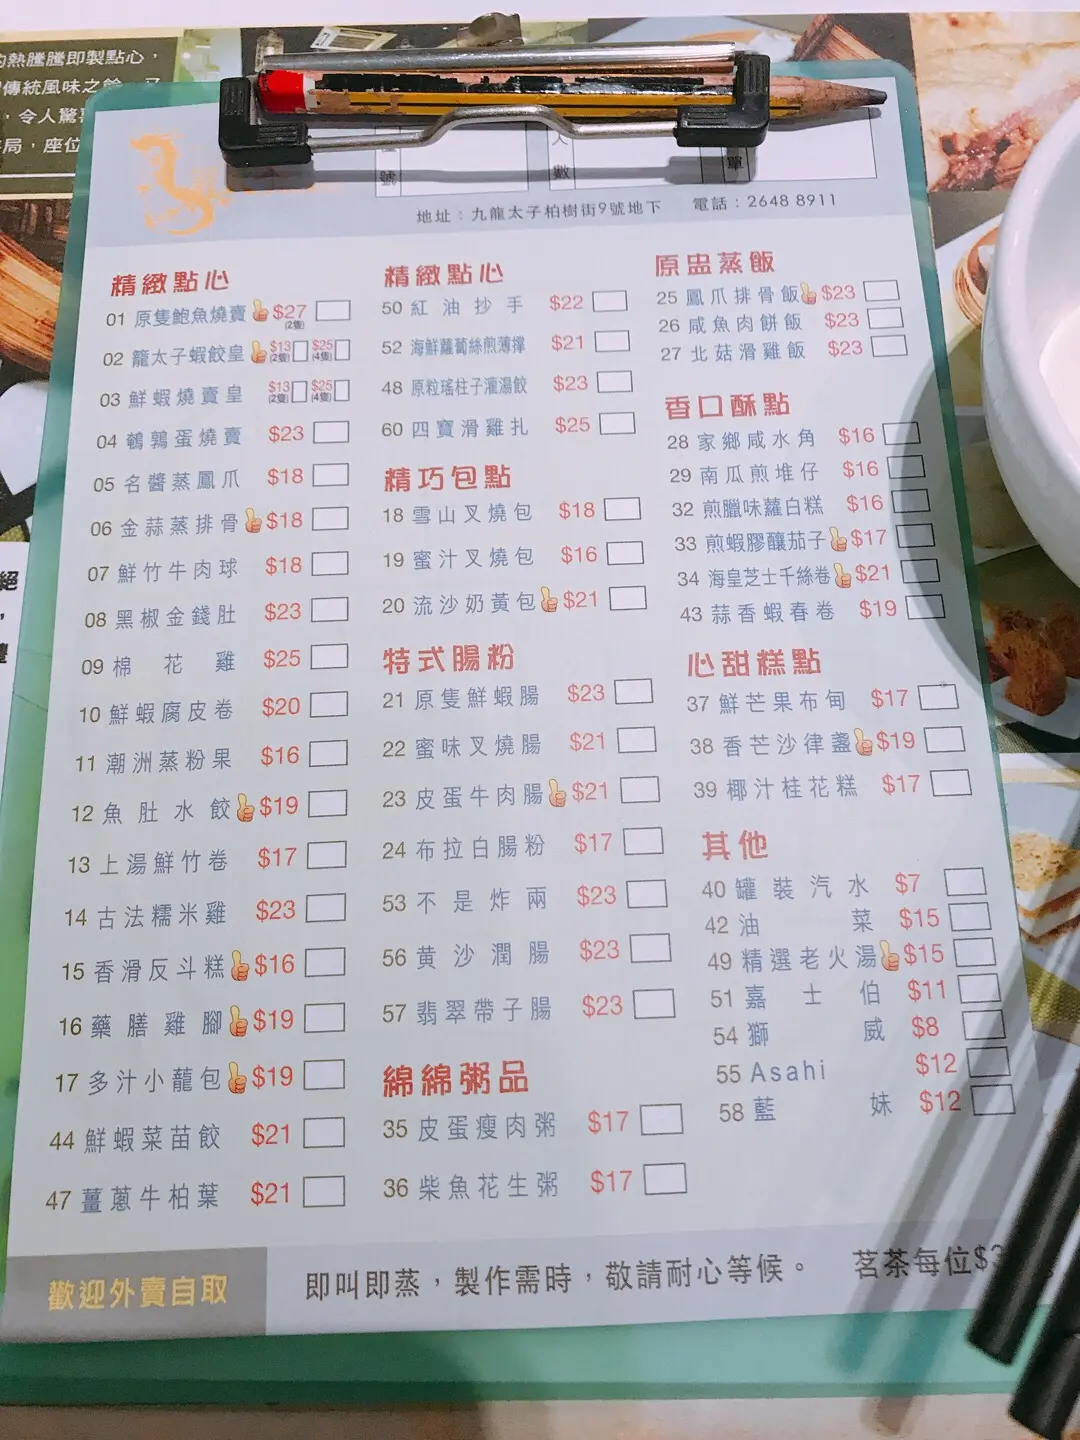 的熱騰騰即製點心，
傳統風味之餘
令人驚
局，座位
號
人數
單
地址：九龍太子柏樹街9號地下 電話：2648 8911
精緻點心
01 原隻鮑魚燒賣 $27 (2隻)
02 籠太子蝦餃皇 $13 (2隻) $25 (4隻)
03 鮮蝦燒賣皇 $13 (2隻) $25 (4隻)
04 鵪鶉蛋燒賣 $23
05 名醬蒸鳳爪 $18
06 金蒜蒸排骨 $18
07 鮮竹牛肉球 $18
08 黑椒金錢肚 $23
09 棉花雞 $25
10 鮮蝦腐皮卷 $20
11 潮洲蒸粉果 $16
12 魚肚水餃 $19
13 上湯鮮竹卷 $17
14 古法糯米雞 $23
15 香滑反斗糕 $16
16 藥膳雞腳 $19
17 多汁小蘢包 $19
44 鮮蝦菜苗餃 $21
47 薑蔥牛柏葉 $21
精緻點心
50 紅油抄手 $22
52 海鮮蘿蔔絲煎薄撐 $21
48 原粒瑤柱子灌湯餃 $23
60 四寶滑雞扎 $25
精巧包點
18 雪山叉燒包 $18
19 蜜汁叉燒包 $16
20 流沙奶黃包 $21
特式腸粉
21 原隻鮮蝦腸 $23
22 蜜味叉燒腸 $21
23 皮蛋牛肉腸 $21
24 布拉白腸粉 $17
53 不是炸兩 $23
56 黄沙潤腸 $23
57 翡翠帶子腸 $23
綿綿粥品
35 皮蛋瘦肉粥 $17
36 柴魚花生粥 $17
原盅蒸飯
25 鳳爪排骨飯 $23
26 咸魚肉餅飯 $23
27 北菇滑雞飯 $23
香口酥點
28 家鄉咸水角 $16
29 南瓜煎堆仔 $16
32 煎臘味蘿白糕 $16
33 煎蝦膠釀茄子 $17
34 海皇芝士千絲卷 $21
43 蒜香蝦春卷 $19
心甜糕點
37 鮮芒果布甸 $17
38 香芒沙律盞 $19
39 椰汁桂花糕 $17
其他
40 罐裝汽水 $7
42 油菜 $15
49 精選老火湯 $15
51 嘉士伯 $11
54 獅威 $8
55 Asahi $12
58 藍妹 $12
歡迎外賣自取
即叫即蒸，製作需時，敬請耐心等候。 茗茶每位$3
絕